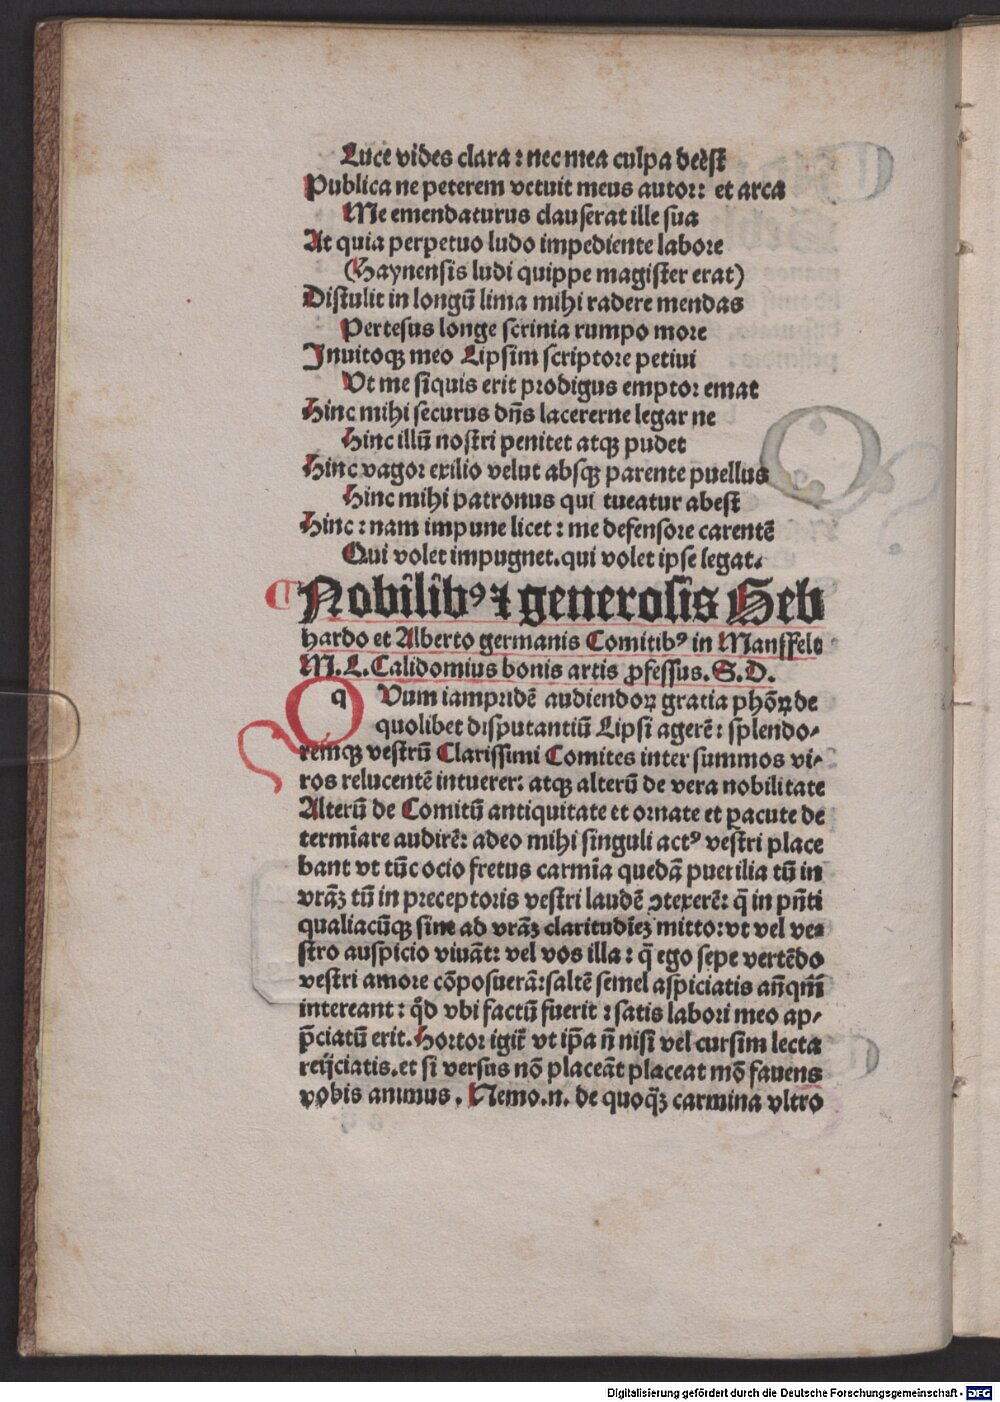 Luce vides clara: nec mea culpa deēst
Publica ne peterem vetuit meus autor: et arca
Me emendaturus clauserat ille sua
At quia perpetuo ludo impediente labore
(Haynensis ludi quippe magister erat)
Distulit in longū lima mihi radere mendas
Pertesus longe scrinia rumpo more
Inuitoqꝫ meo Lipsim scriptore petiui
Vt me siquis erit prodigus emptor emat
Hinc mihi securus dn̄s lacererne legar ne
Hinc illū nostri penitet atqꝫ pudet
Hinc vagor exilio velut absqꝫ parente puellus
Hinc mihi patronus qui tueatur abest
Hinc: nam impune licet: me defensore carentē
Qui volet impugnet. qui volet ipse legat.
¶ Nobilibꝰ ⁊ generosis Geb
hardo et Alberto germanis Comitibꝰ in Manssfelt
M. L. Calidomius bonis artis ꝓfessus. S. D.
qVum iampridē audiendoꝝ gratia phōꝝ de
quolibet disputantiū Lipsi agerē: splendo-
remqꝫ vestrū Clarissimi Comites inter summos vi-
ros relucentē intuerer: atqꝫ alterū de vera nobilitate
Alterū de Comitū antiquitate et ornate et ꝑacute de
termīare audirē: adeo mihi singuli actꝰ vestri place
bant vt tūc ocio fretus carmīa quedā puerilia tū in
vrāꝫ tū in preceptoris vestri laudē ꝯtexerē: q̄ in pn̄ti
qualiacūqꝫ sine ad vrāꝫ claritudīeꝫ mitto: vt vel ve-
stro auspicio viuāt: vel vos illa: q̄ ego sepe vertēdo
vestri amore cōposuerā: saltē semel aspiciatis an̄qm̄
intereant: qd̄ vbi factū fuerit: satis labori meo ap-
p̄ciatū erit. Hortor igit̄ vt ip̄a n̄ nisi vel cursim lecta
reijciatis. et si versus nō placeāt placeat mō fauens
vobis animus. Nemo .n. de quoqꝫ carmina vltro
Digitalisierung gefördert durch die Deutsche Forschungsgemeinschaft - DFG